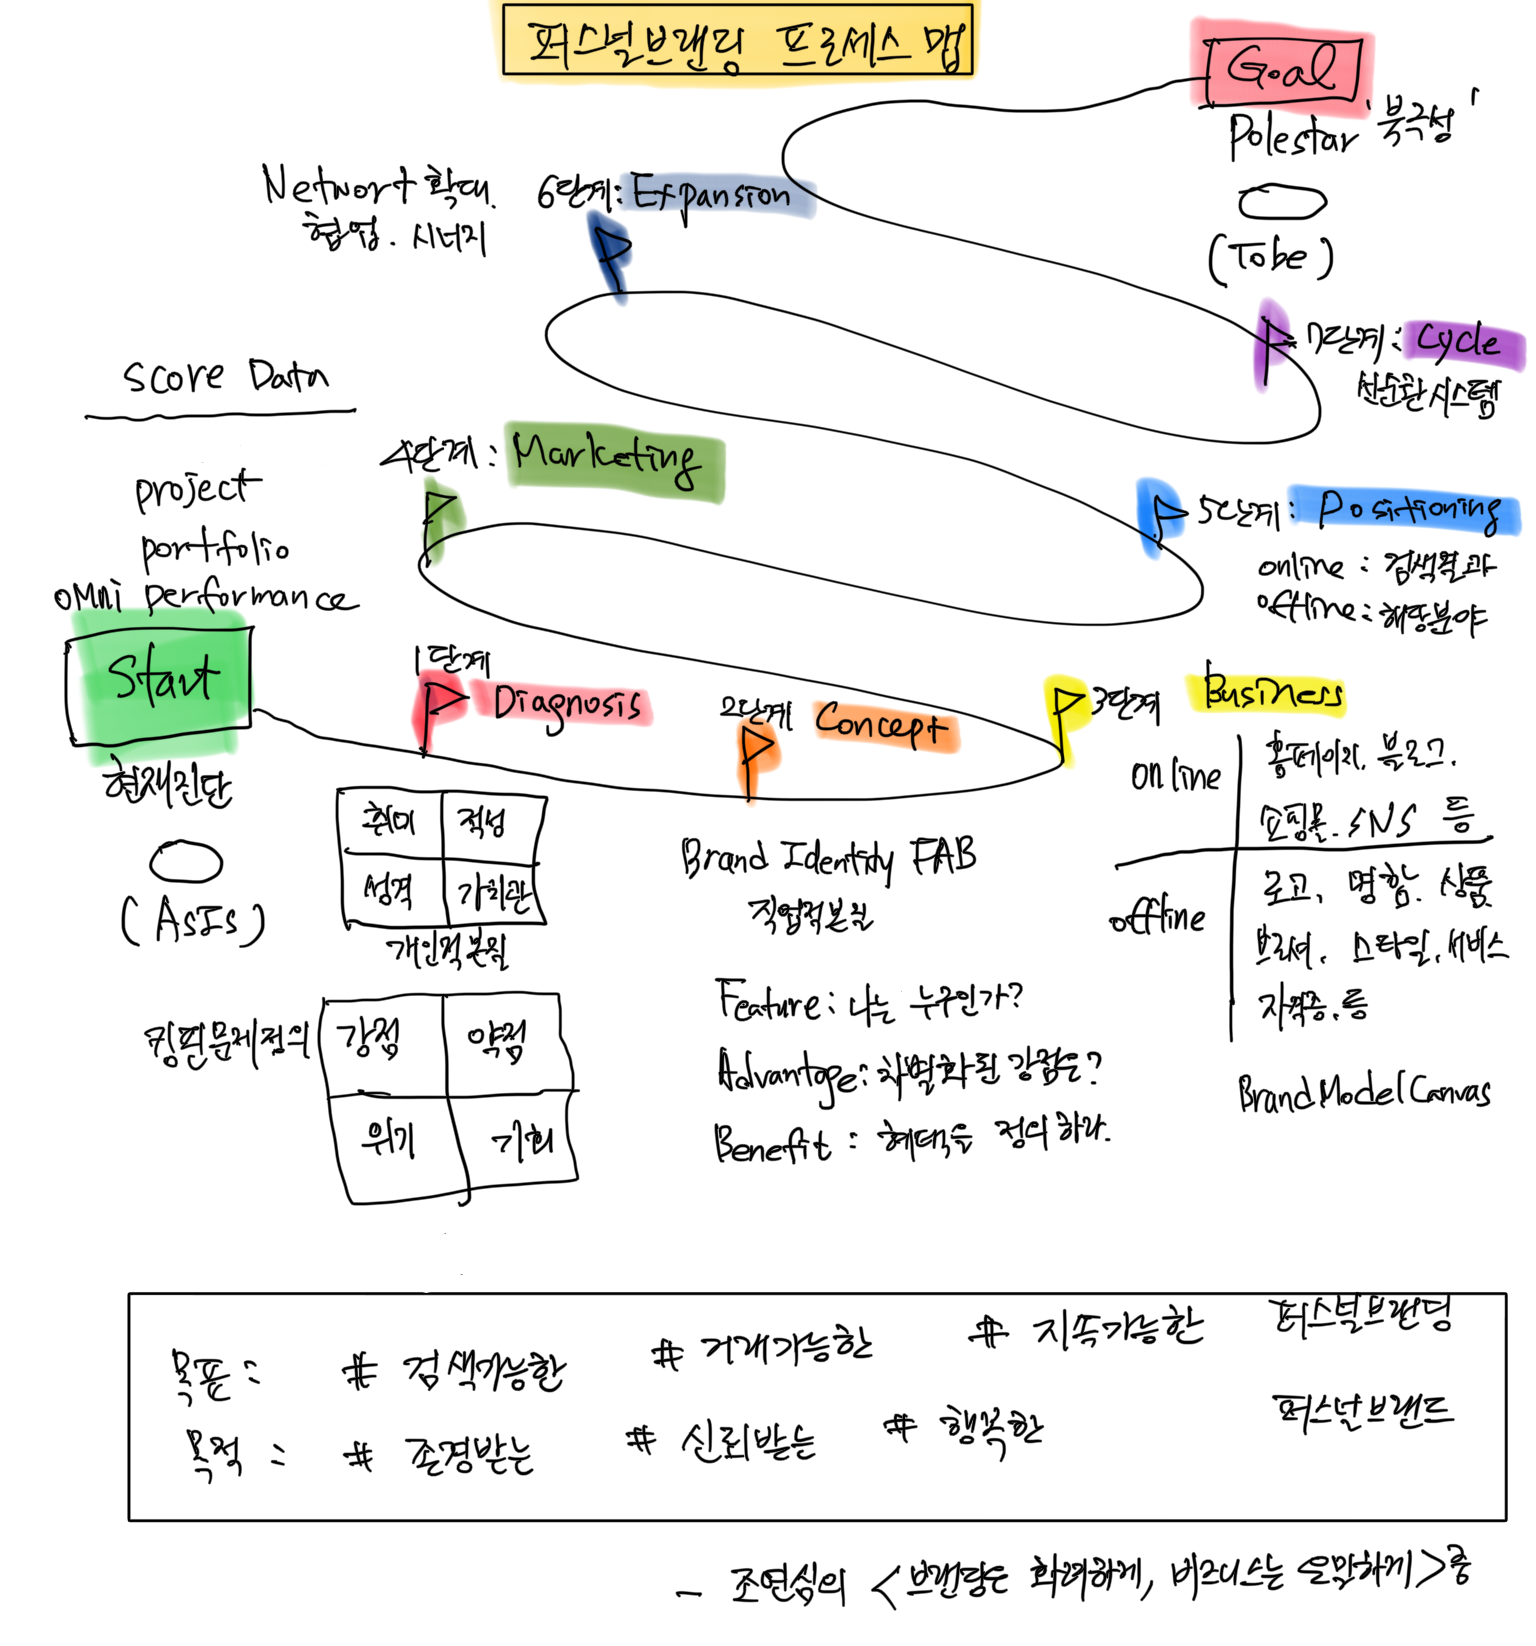 퍼스널브랜딩 프로세스 맵
Goal
Polestar '북극성'
(Tobe)
Network 확대.
협업. 시너지
6단계: Expansion
7단계: Cycle
선순환시스템
score Data
project
portfolio
oMni performance
4단계: Marketing
5단계: Positioning
online: 검색결과
offline: 해당분야
Start
현재진단
(AsIs)
1단계
Diagnosis
취미 적성
성격 가치관
개인적본질
킹핀문제정의
강점 약점
위기 기회
2단계 Concept
Brand Identity FAB
직업적본질
Feature: 나는 누구인가?
Advantage: 차별화된 강점은?
Benefit: 혜택을 정의하라.
3단계 Business
online
홈페이지. 블로그.
쇼핑몰. SNS 등
offline
로고, 명함. 상품.
브로셔, 스타일, 서비스
자격증, 등
BrandModelCanvas
목표: # 검색가능한 # 거래가능한 # 지속가능한 퍼스널브랜딩
목적: # 존경받는 # 신뢰받는 # 행복한 퍼스널브랜드
- 조연심의 <브랜딩은 화려하게, 비즈니스는 은밀하게> 중